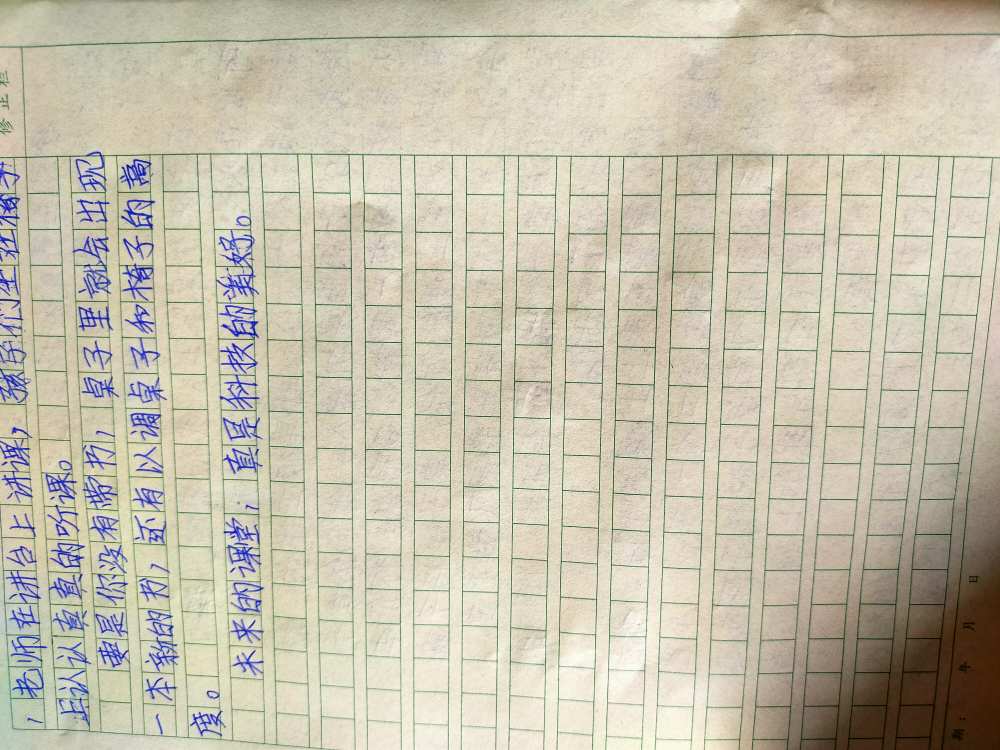 修正栏
，老师在讲台上讲课，孩子们坐在椅子
上认认真真的听课。
要是你没有带书，桌子里就会出现
一本新的书，还有以调桌子和椅子的高
度。
未来的课堂；真是科技的美好。
期： 年 月 日